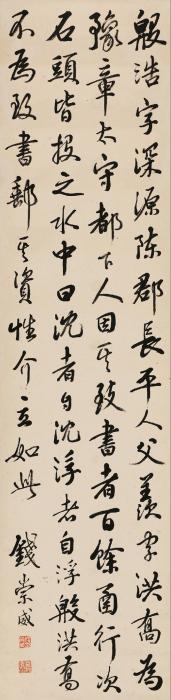 殷浩字深源陳郡長平人父羨字洪喬為
豫章太守都下人因其致書者百餘函行次
石頭皆投之水中曰沈者自沈浮者自浮殷洪喬
不為致書郵其資性介立如此
錢崇威